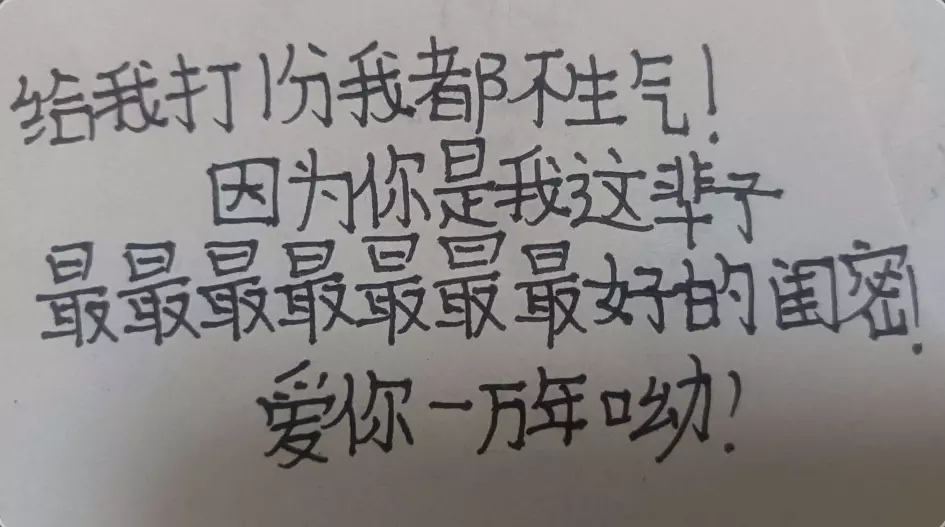 给我打1份我都不生气!
因为你是我这辈子
最最最最最最最好的闺密!
爱你一万年呦!